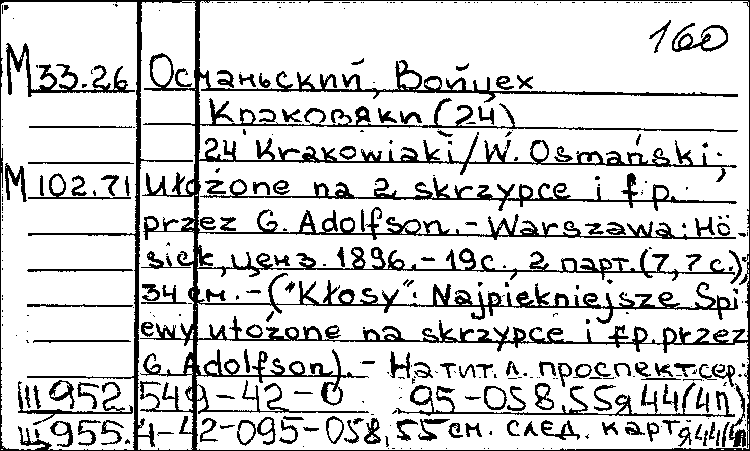 160
М 33.26 Османьский, Войцех
Краковяки (24)
24 Krakowiaki / W. Osmański;
М 102.71 Ułożone na 2 skrzypce i fp.
przez G. Adolfson. – Warszawa: Hö-
siek, ценз. 1896. – 19 с., 2 парт. (7, 7 с.);
34 см. – ("Kłosy": Najpiekniejsze Spi
ewy ułożone na skrzypce i fp. przez
G. Adolfson). – На тит. л. проспект сер.
Ш 952. 549-42-0 95-058,55я44(4п)
Ш 955. 4-42-095-058,55 см. след. карт я44(4п)